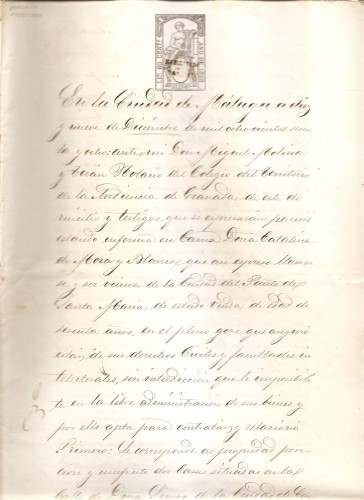 En la Ciudad de Málaga a diez
y nueve de Diciembre de mil ochocientos sesen
ta y ocho: ante mi Don Miguel Molina
y Terán Notario del Colegio del territorio
de la Audiencia de Granada de este do
micilio y testigos que se espresarán pareció
estando enferma en Cama Doña Catalina
de Mora y Blanco, que asi espresó llamar
se y ser vecina de la Ciudad del Puerto de
Santa Maria, de estado viuda de edad de
sesenta años, en el pleno goce que aseguró
estár, de sus derechos Civiles y facultades in
telectuales, sin interdiccion que le imposibili
te en la libre administracion de sus bienes y
por ello apta para contratar y relacionó
Primero: Le corresponde en propiedad por
cion y usufructo dos Casas situadas en la
Calle de Doña de la Ciudad de